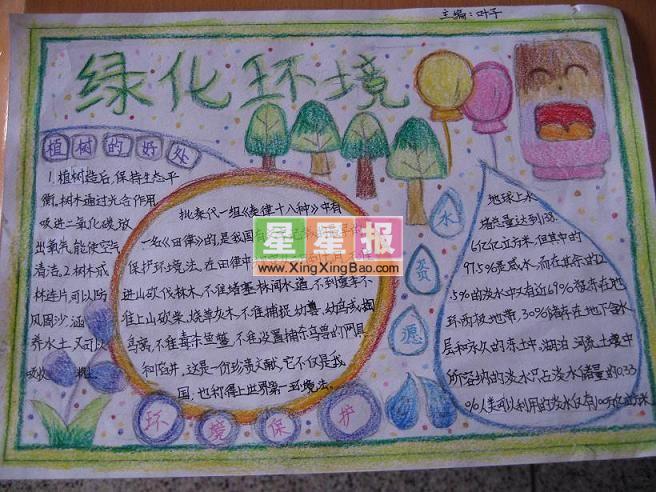 主编：叶子
绿化环境
植树的好处
1.植树造后,保持生态平
衡,树木通过光合作用
吸进二氧化碳,放
出氧气,能使空气
清洁.2.树木成
林连片可以防
风固沙,涵
养水土,又可以
吸收
批秦代一组《秦律十八种》中有
一处《田律》的,是我国有
保护环境法,在田律中
进山砍伐林木,不准堵塞林间水道,不到
准上山砍柴,烧草灰木,不准捕捉幼兽,幼鸟或掏
鸟窝,不准毒杀鱼鳖,不准设置捕杀鸟兽的网具
和陷井,这是一份珍贵文献,它不仅是我
国,也称得上世界第一环境法。
环境保护
星星报
www.XingXingBao.com
水资愿
地球上水
储总量达到138.
6亿亿立方米,但其中的
97.5%是咸水,而在其余的2
.5%的淡水中又有近69%贮存在地
球两极地带,30%储存在地下含水
层和永久的冻土中,湖泊、河流、土壤中
所容纳的淡水只占淡水储量的0.33
%人类可以利用的淡水仅有